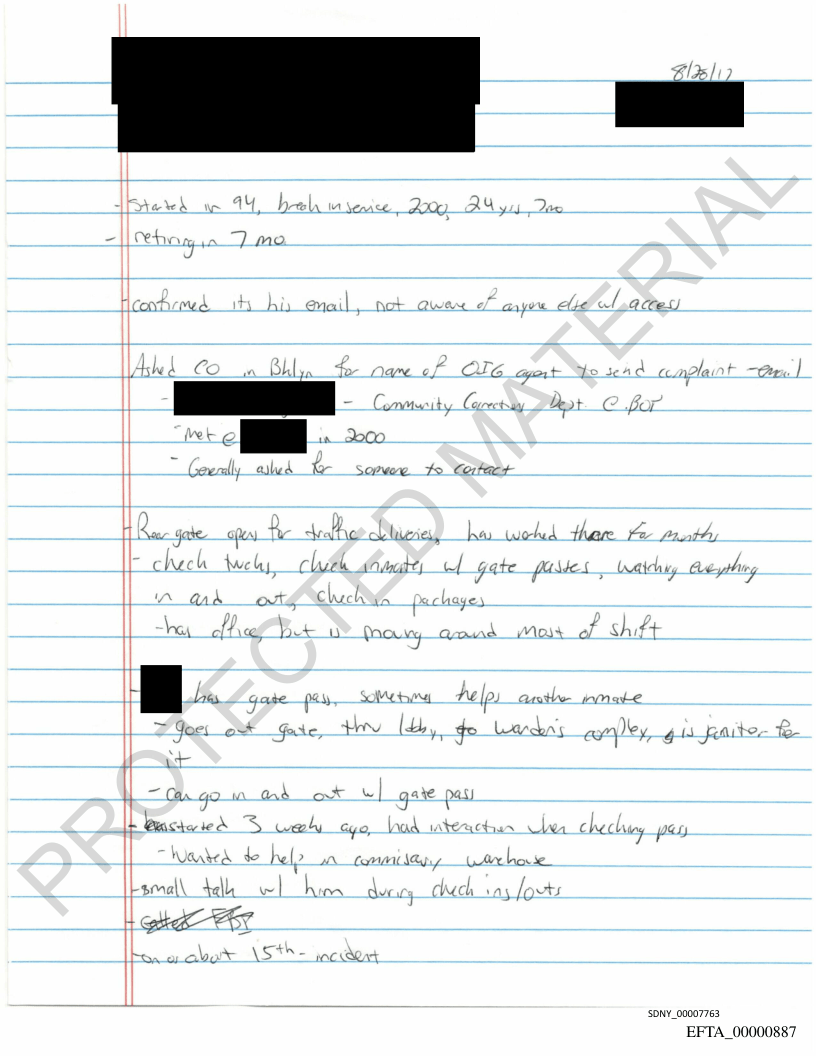 8/28/17
- Started in 94, break in service, 2000, 24 yrs, 7mo
- retiring in 7 mo.
- confirmed its his email, not aware of anyone else w/ access
Asked CO in Bklyn for name of OIG agent to send complaint - email
- - Community Correction Dept @ BOP
- Met @ in 2000
- Generally asked for someone to contact
- Rear gate open for traffic deliveries, has worked there for months
- check trucks, check inmates w/ gate passes, watching everything
in and out, check in packages
- has office, but is moving around most of shift
- has gate pass, sometimes helps another inmate
- goes out gate, thru lobby, to warden's complex, is janitor for
it
- can go in and out w/ gate pass
- started 3 weeks ago, had interaction when checking pass
- Wanted to help in commissary warehouse
- small talk w/ him during check ins/outs
- on or about 15th - incident
PROTECTED MATERIAL
SDNY_00007763
EFTA_00000887